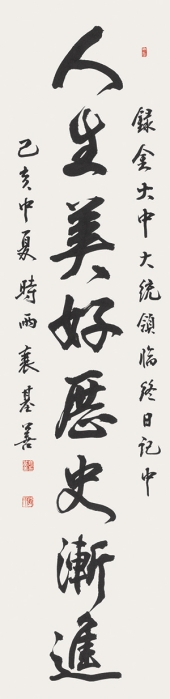 録金大中大統領臨終日記中
人生美好歷史漸進
己亥中夏時雨裵基善